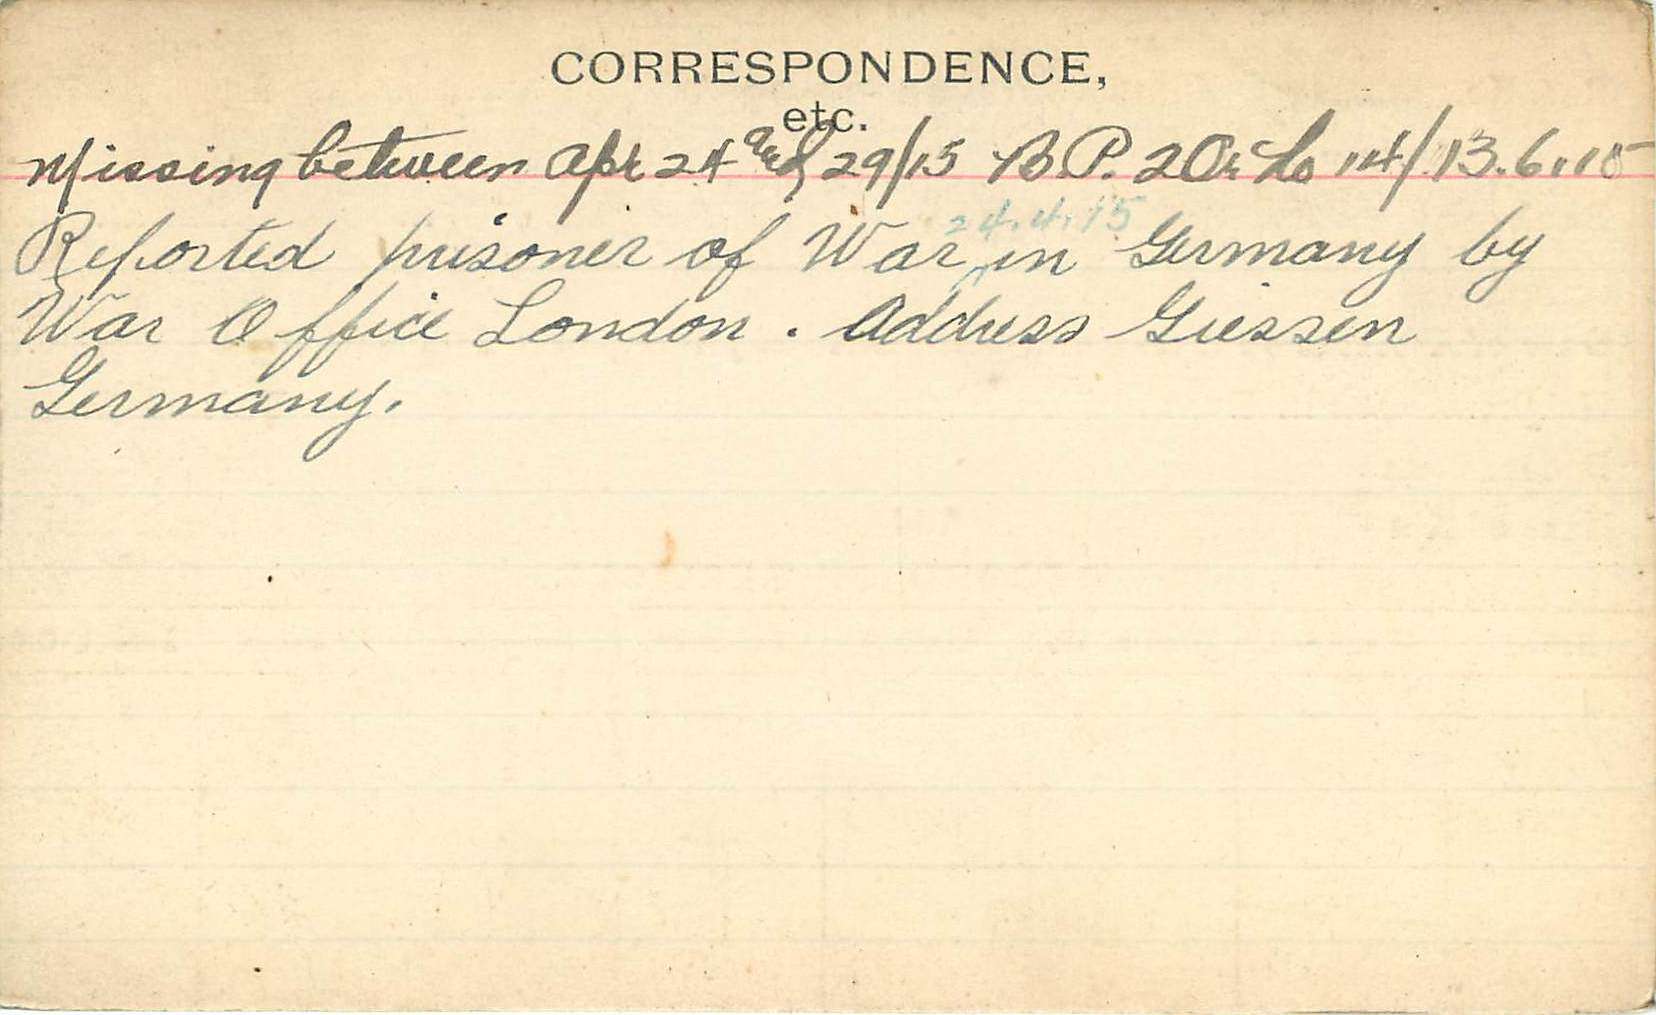 CORRESPONDENCE,
etc.
Missing between Apr 24 and 29/15 B.P. 2 Or Lo 14/13.6.15
24.4.15
Reported prisoner of War in Germany by
War Office London. Address Giessen
Germany.